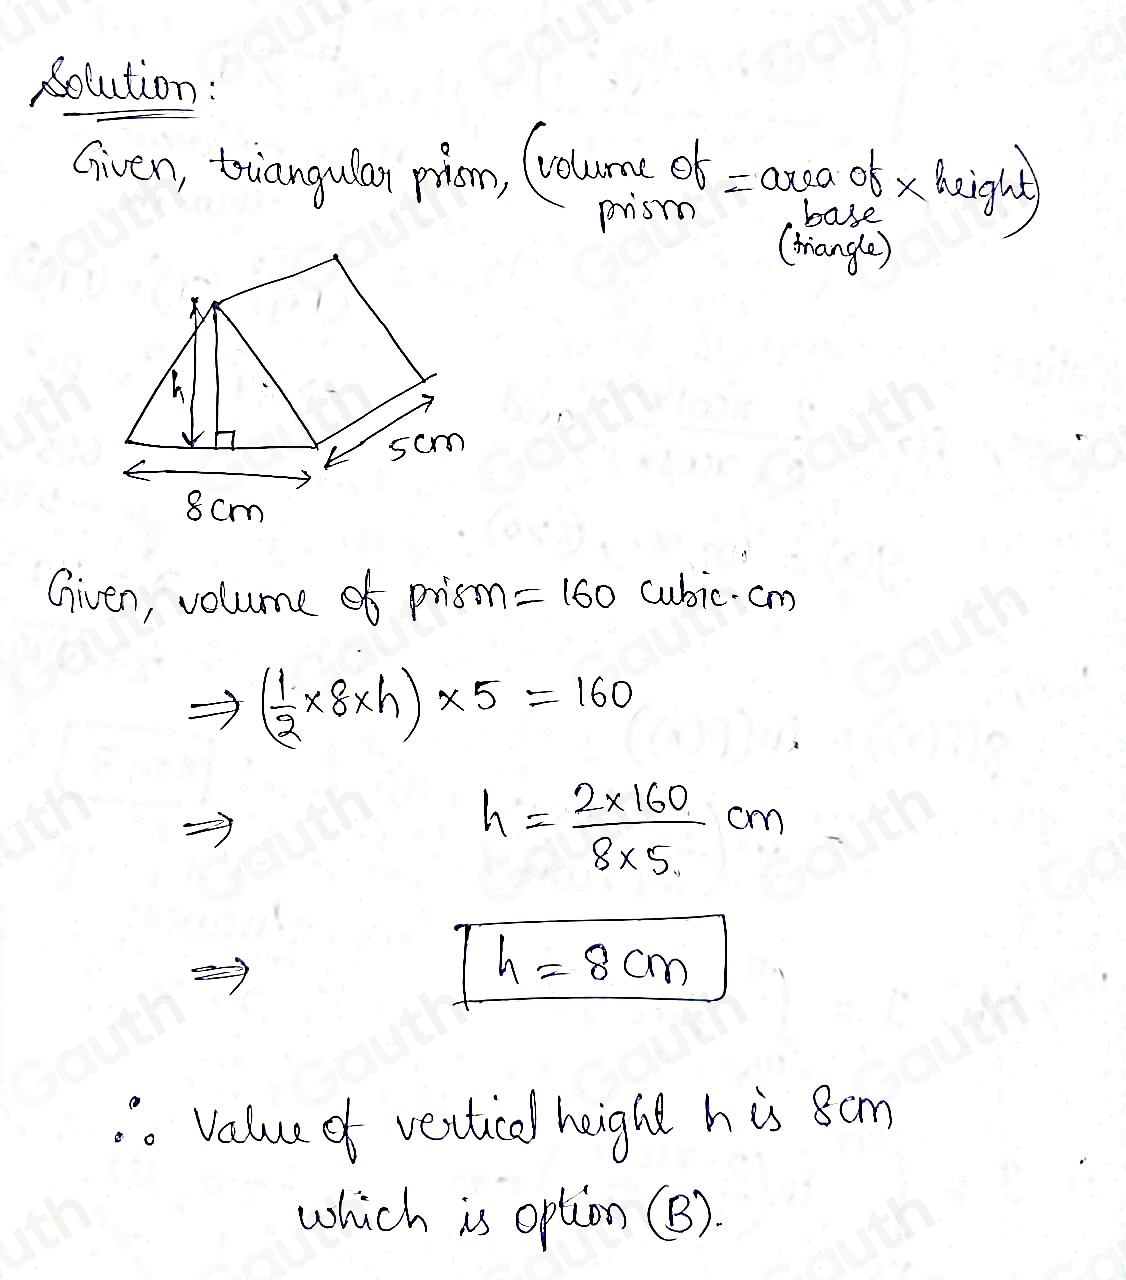 Solution:
Given, triangular prism, (volume of prism = area of base (triangle) × height)
h
5cm
8cm
Given, volume of prism = 160 cubic.cm
⇒ (1/2 × 8 × h) × 5 = 160
⇒ h = (2×160)/(8×5) cm
⇒ h = 8cm
∴ Value of vertical height h is 8cm
which is option (B).
Gauth